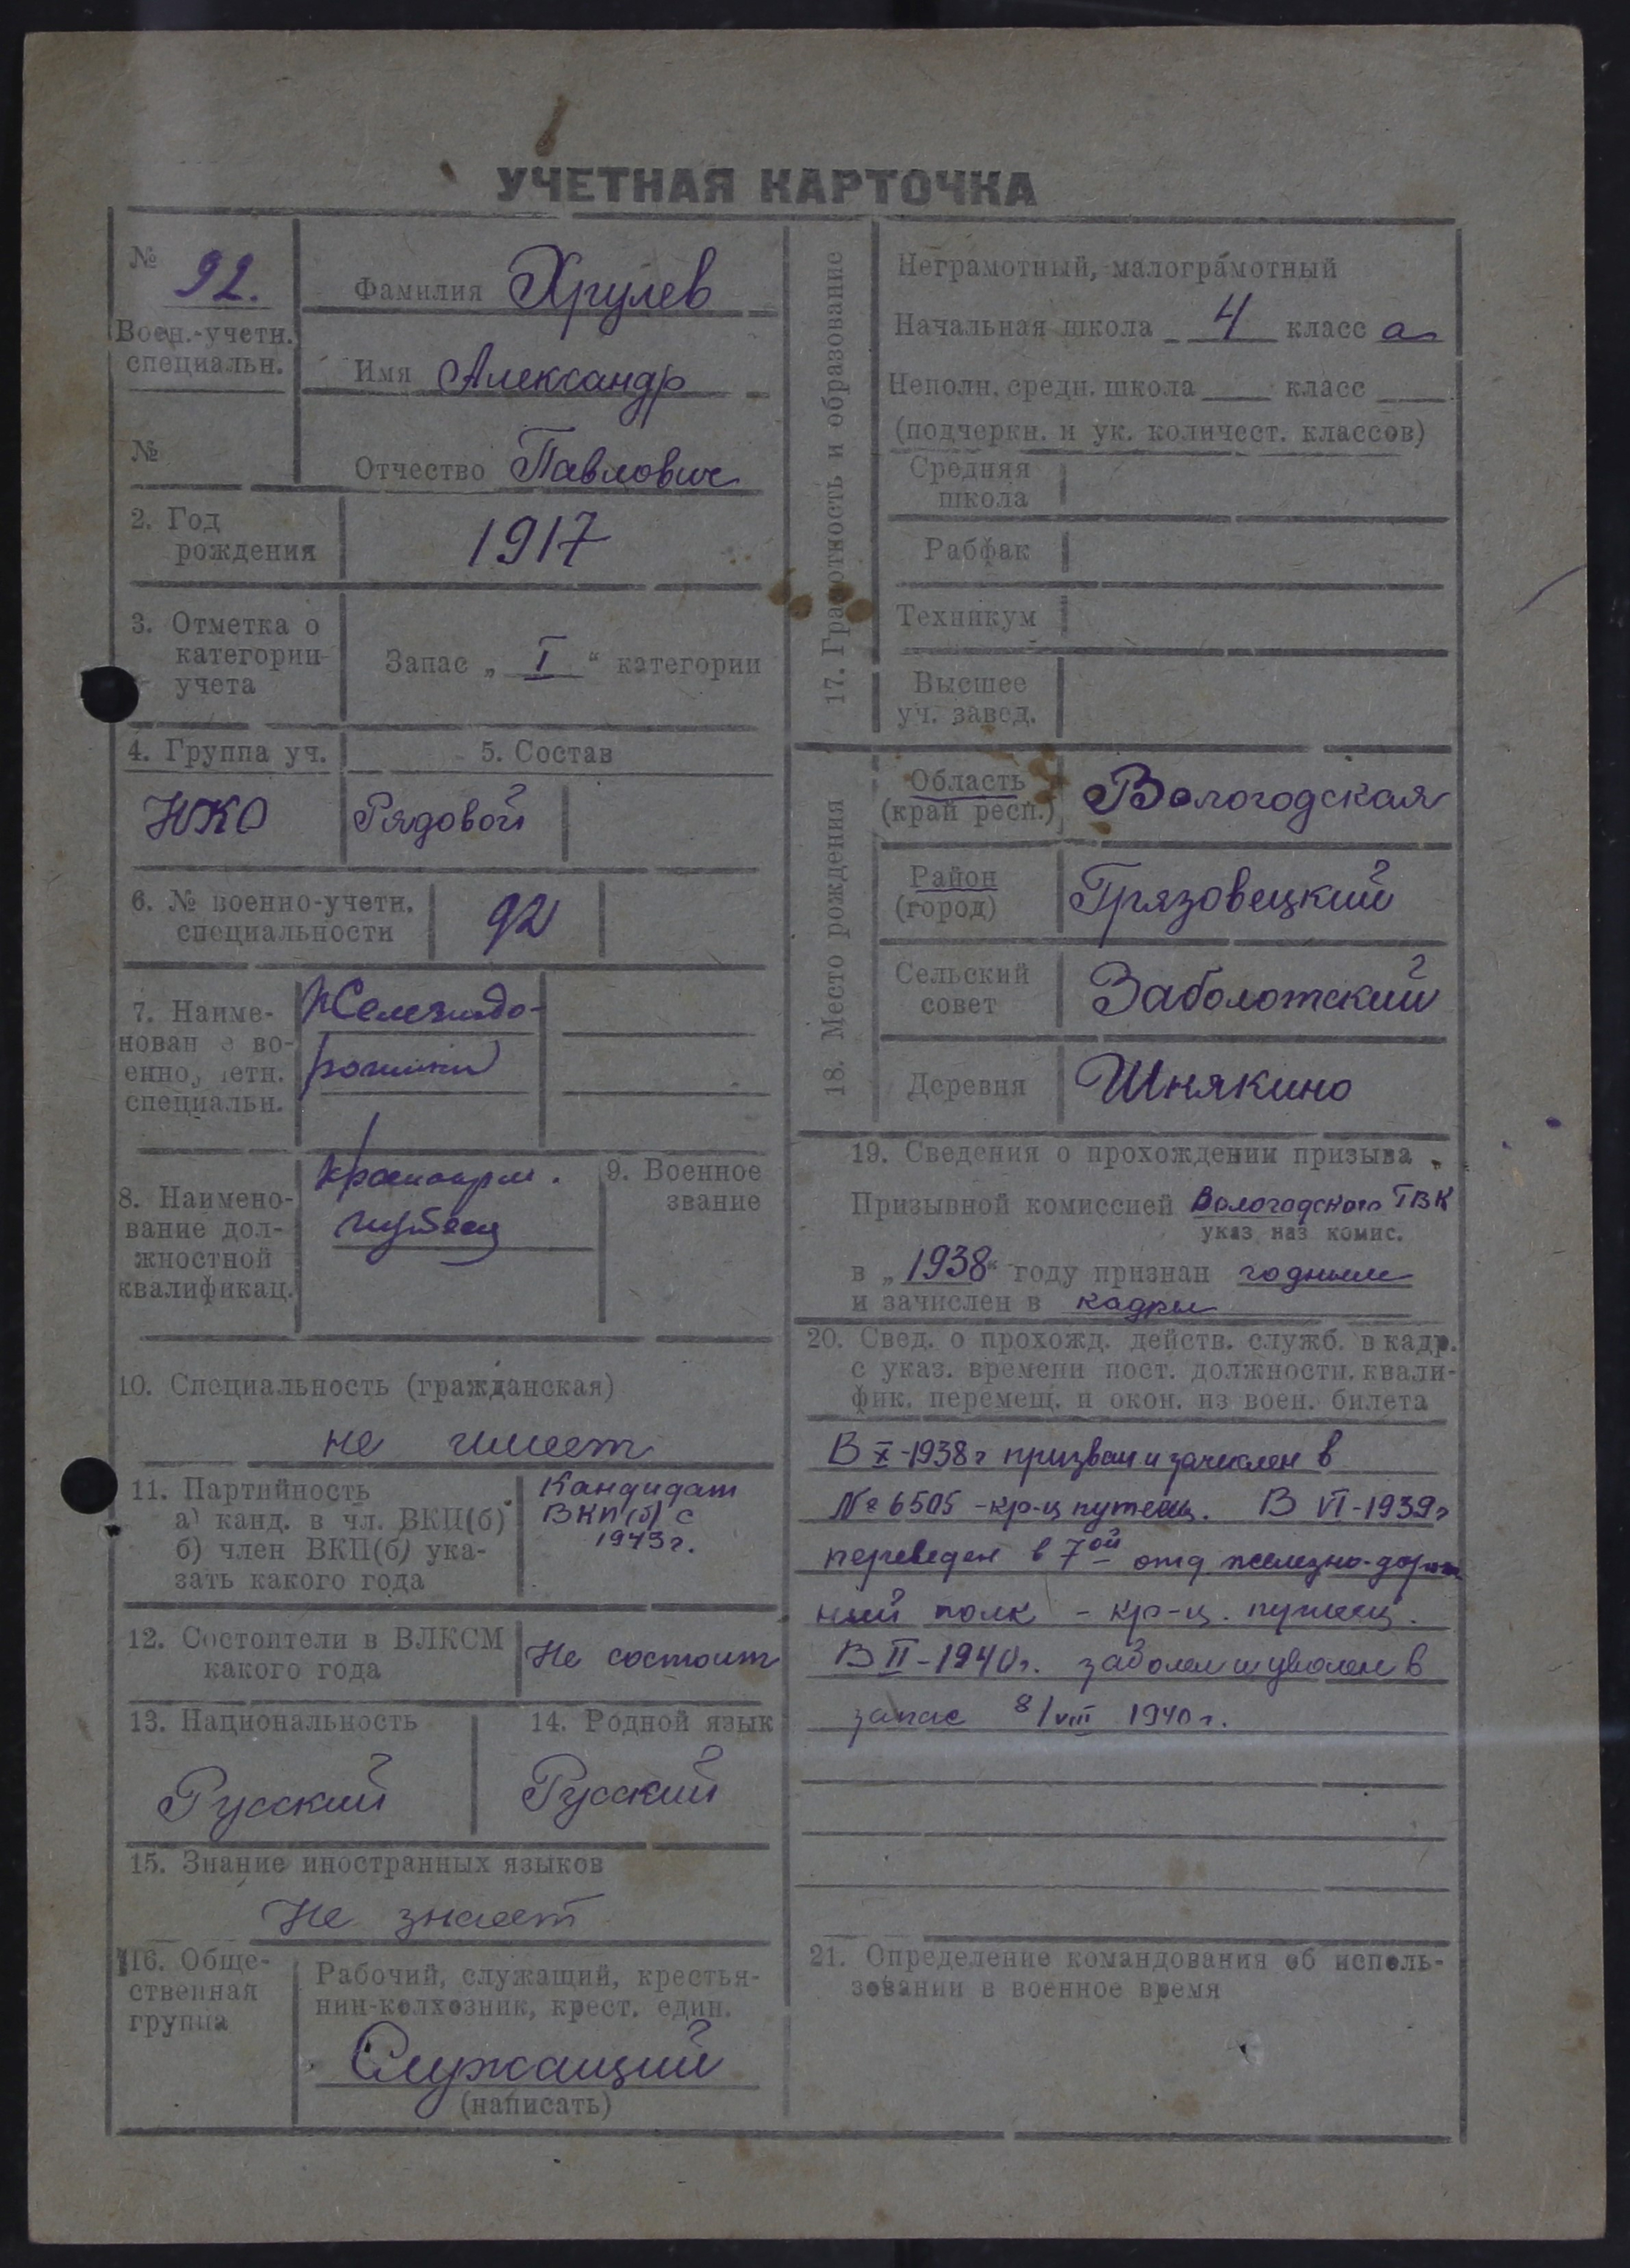 УЧЕТНАЯ КАРТОЧКА
№ 92.
Воен.-учетн.
специальн.
№
Фамилия Хрулев
Имя Александр
Отчество Павлович
2. Год
рождения
1917
3. Отметка о
категории
учета
Запас „ I “ категории
4. Группа уч.
5. Состав
НКО
Рядовой
6. № военно-учетн.
специальности
92
7. Наиме-
нован е во-
енно, четн.
специальн.
Железнодо-
рожники
8. Наимено-
вание дол-
жностной
квалификац.
Красноарм.
путеец
9. Военное
звание
10. Специальность (гражданская)
не имеет
11. Партийность
а) канд. в чл. ВКП(б)
б) член ВКП(б) ука-
зать какого года
Кандидат
ВКП(б) с
1943г.
12. Состоители в ВЛКСМ
какого года
Не состоит
13. Национальность
Русский
14. Родной язык
Русский
15. Знание иностранных языков
Не знает
16. Обще-
ственная
группа
Рабочий, служащий, крестья-
нин-колхозник, крест. един.
Служащий
(написать)
17. Грамотность и образование
Неграмотный, малограмотный
Начальная школа 4 класс а
Неполн. средн. школа класс
(подчеркн. и ук. количест. классов)
Средняя
школа
Рабфак
Техникум
Высшее
уч. завед.
18. Место рождения
Область
(край респ.)
Вологодская
Район
(город)
Грязовецкий
Сельский
совет
Заболотский
Деревня
Шнякино
19. Сведения о прохождении призыва
Призывной комиссией Вологодского ГВК
указ наз комис.
в „1938“ году признан годным
и зачислен в кадры
20. Свед. о прохожд. действ. служб. в кадр.
с указ. времени пост. должности, квали-
фик. перемещ. и окон. из воен. билета
В X-1938г призван и зачислен в
№ 6505 - кр-ц путеец. В VI-1939г
переведен в 7ой отд железно-дорож
ный полк - кр-ц. путеец.
В II-1940г. заболел и уволен в
запас 8/VIII 1940г.
21. Определение командования об исполь-
зовании в военное время